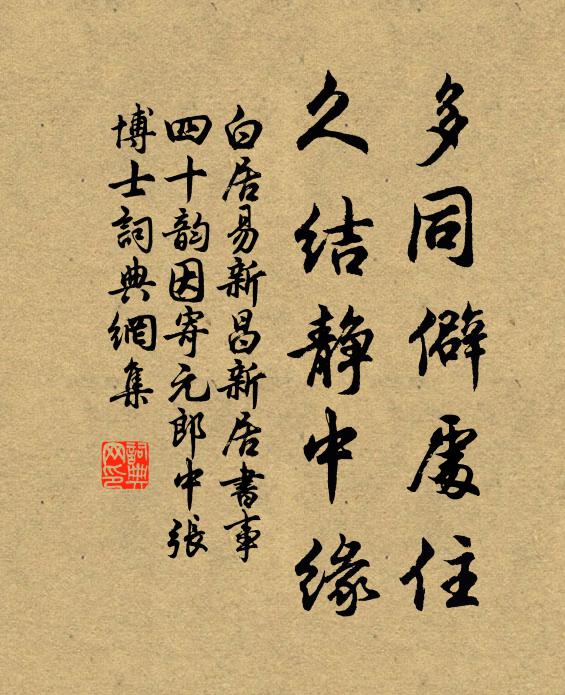 多同僻處住
久结静中缘
白居易新昌新居書事
四十韵因寄元郎中張
博士詞典網集
詞典
网印